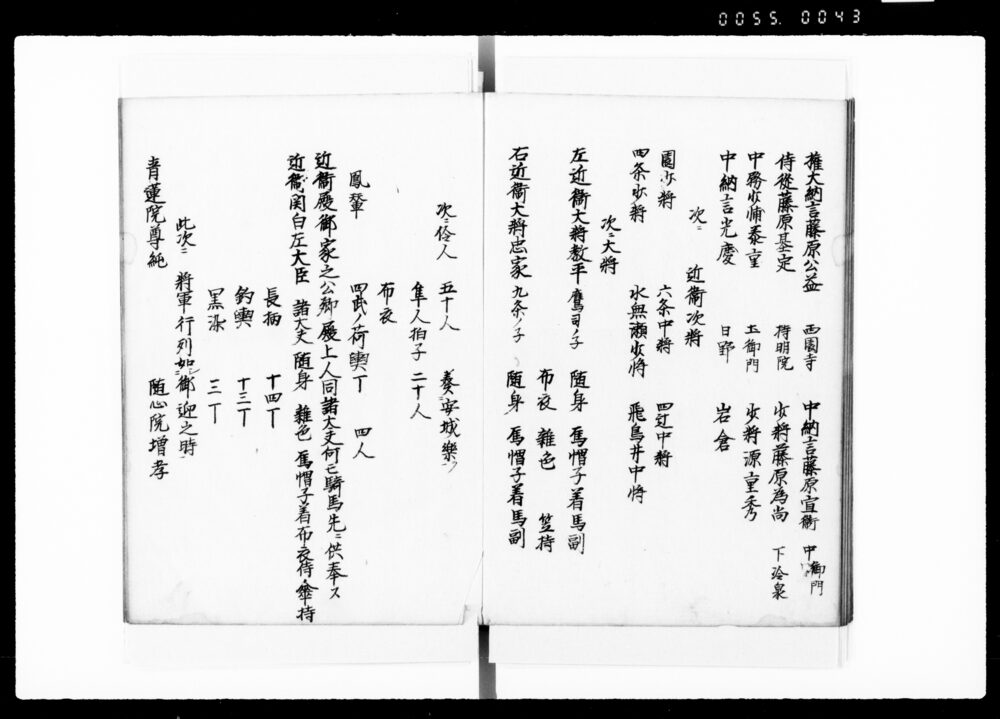 0055.0043
権大納言藤原公益 西園寺 中納言藤原宣衡 中御門
侍従藤原基定 持明院 少将藤原為尚 下冷泉
中務少輔泰重 土御門 少将源重秀
中納言光慶 日野 岩倉
次ニ 近衛次将
園少将 六条中将 四辻中将
四条少将 水無瀬少将 飛鳥井中将
次ニ大将
左近衛大将教平 鷹司ノ子 随身 烏帽子着馬副
布衣 雑色 笠持
右近衛大将忠家 九条ノ子 随身 烏帽子着馬副
次ニ伶人 五十人 奏安城樂ヲ
隼人拍子 二十人
布衣
鳳輦 四武ノ荷輿丁 四人
近衛殿御家之公卿殿上人同諸大夫何モ騎馬先ニ供奉ス
近衛関白左大臣 諸大夫 随身 雑色 烏帽子着布衣侍傘持
長柄 十四丁
釣輿 十三丁
黒染 三丁
此次ニ 将軍行列如御迎之時
青蓮院尊純 随心院増孝